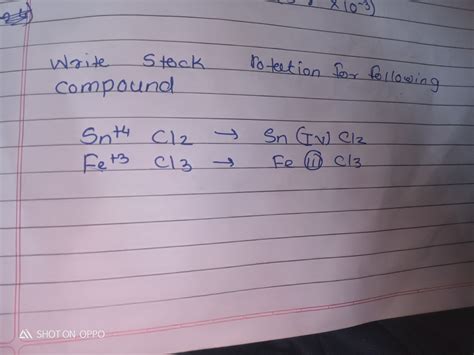 ×10⁻³)
Write Stock notation for following
compound
Sn⁺⁴ Cl2 → Sn (IV) Cl2
Fe⁺³ Cl3 → Fe (III) Cl3
SHOT ON OPPO